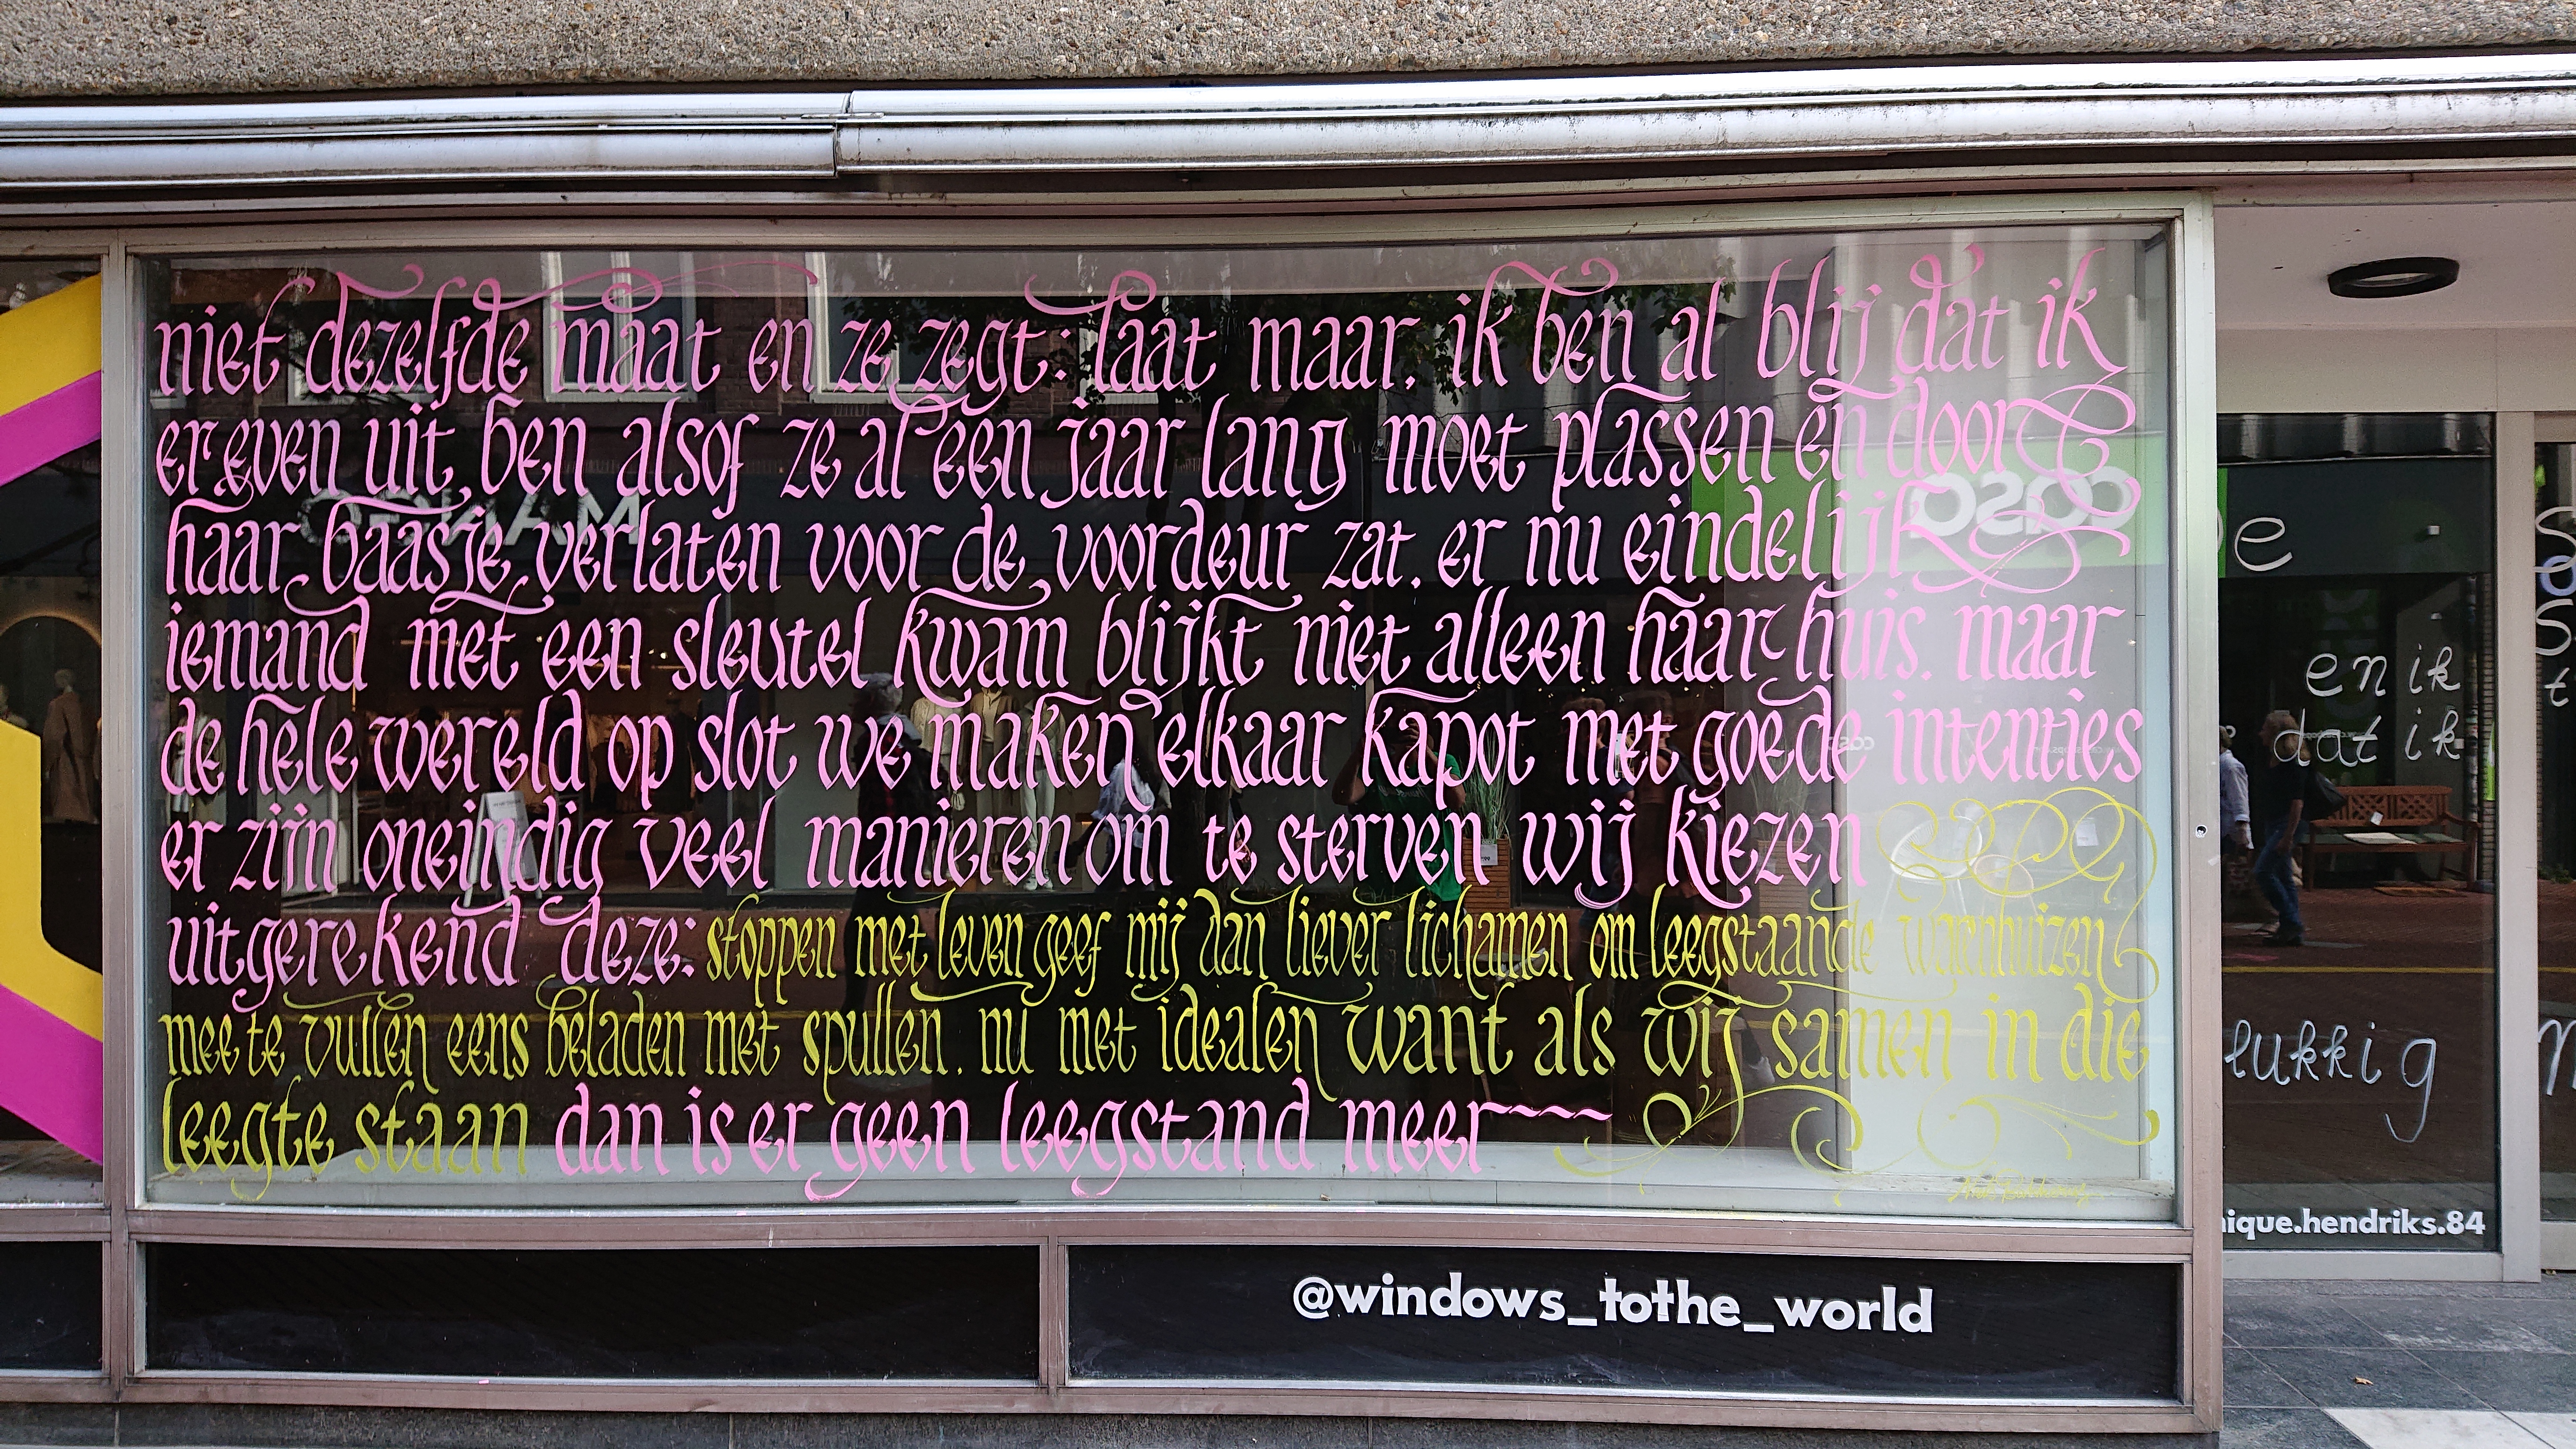 niet dezelfde maat en ze zegt: laat maar, ik ben al blij dat ik
er even uit ben alsof ze al een jaar lang moet plassen en door
haar baasje verlaten voor de voordeur zat. er nu eindelijk
iemand met een sleutel kwam blijkt niet alleen haar huis. maar
de hele wereld op slot we maken elkaar kapot met goede intenties
er zijn oneindig veel manieren om te sterven wij kiezen
uitgerekend deze: stoppen met leven geef mij dan liever lichamen om leegstaande warenhuizen
mee te vullen eens beladen met spullen. nu met idealen want als wij samen in die
leegte staan dan is er geen leegstand meer~~~
@windows_tothe_world
MANGO
COSO
e
en ik
dat ik
lukkig
nique.hendriks.84